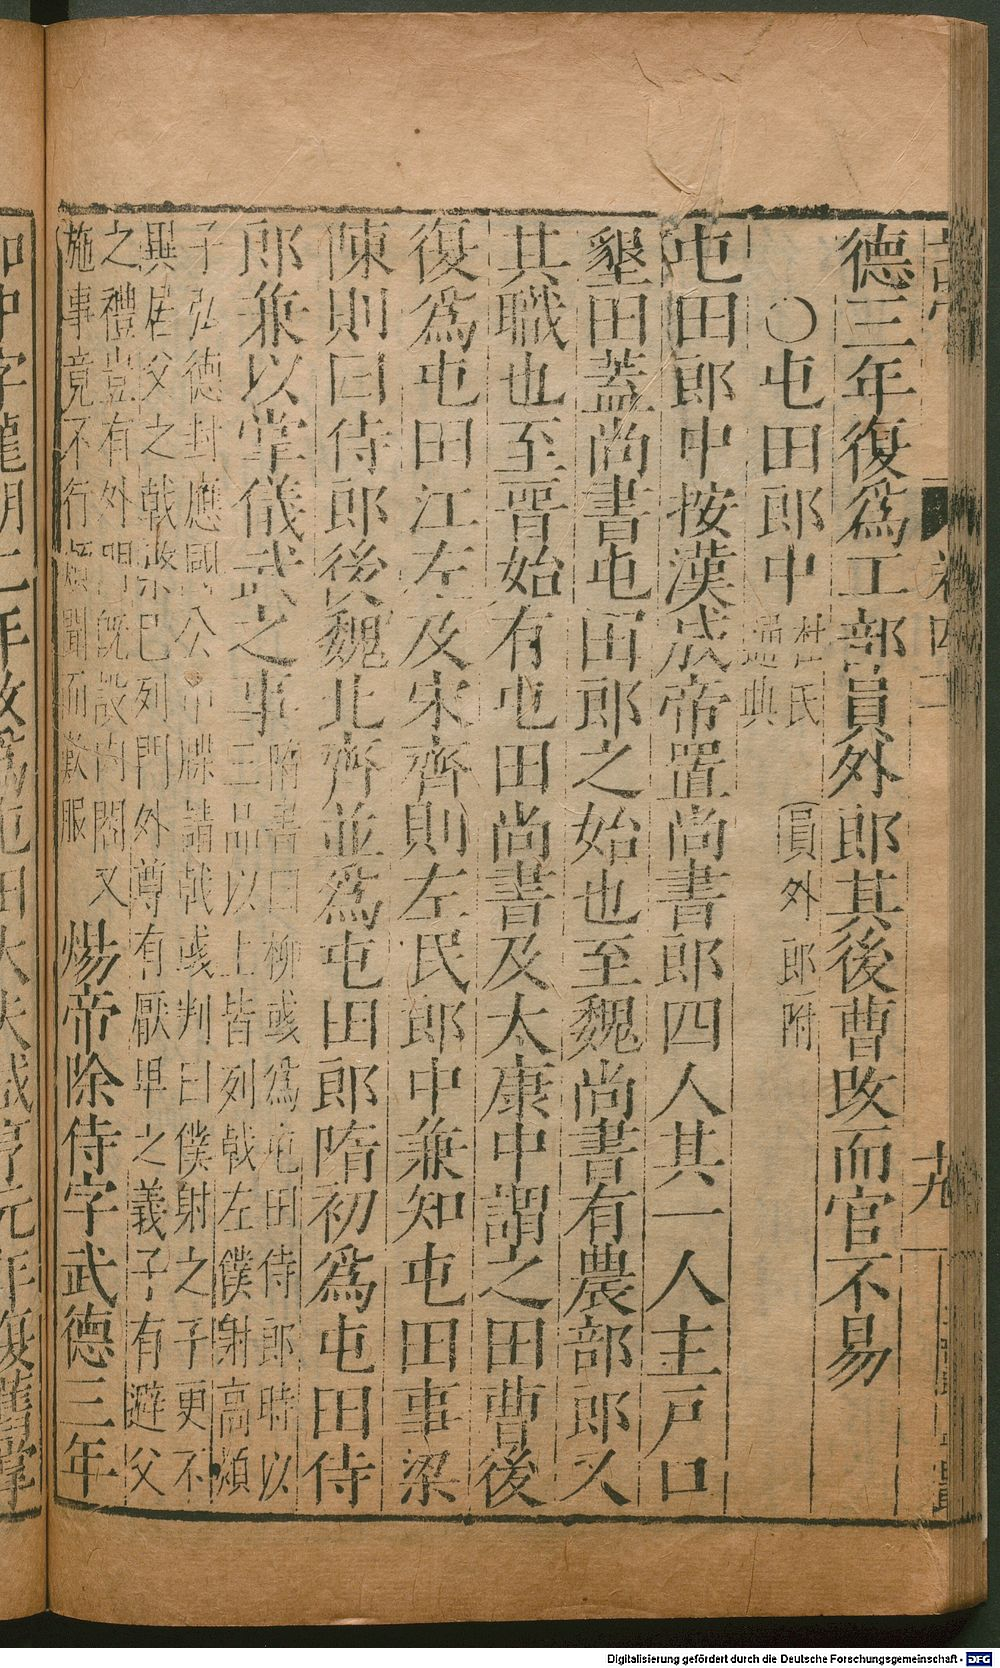 德三年復爲工部員外郎其後曹改而官不易
○屯田郎中 杜氏通典 員外郎附
屯田郎中按漢成帝置尚書郎四人其一人主戶口
墾田蓋尚書屯田郎之始也至魏尚書有農部郎又
其職也至晉始有屯田尚書及太康中謂之田曹後
復爲屯田江左及宋齊則左民郎中兼知屯田事梁
陳則曰侍郎後魏北齊並爲屯田郎隋初爲屯田侍
郎兼以掌儀武之事
隋書曰柳彧爲屯田侍郎時以
三品以上皆列戟左僕射高熲
子弘德封應國公申牒請戟彧判曰僕射之子更不
異居父之戟槊已列門外尊有厭卑之義子有避父
之禮豈有外門既設內閤又
施事竟不行熲聞而歎服
煬帝除侍字武德三年
卷四十
十九
加中字龍朔二年改爲屯田大夫咸亨元年復舊掌
Digitalisierung gefördert durch die Deutsche Forschungsgemeinschaft - DFG